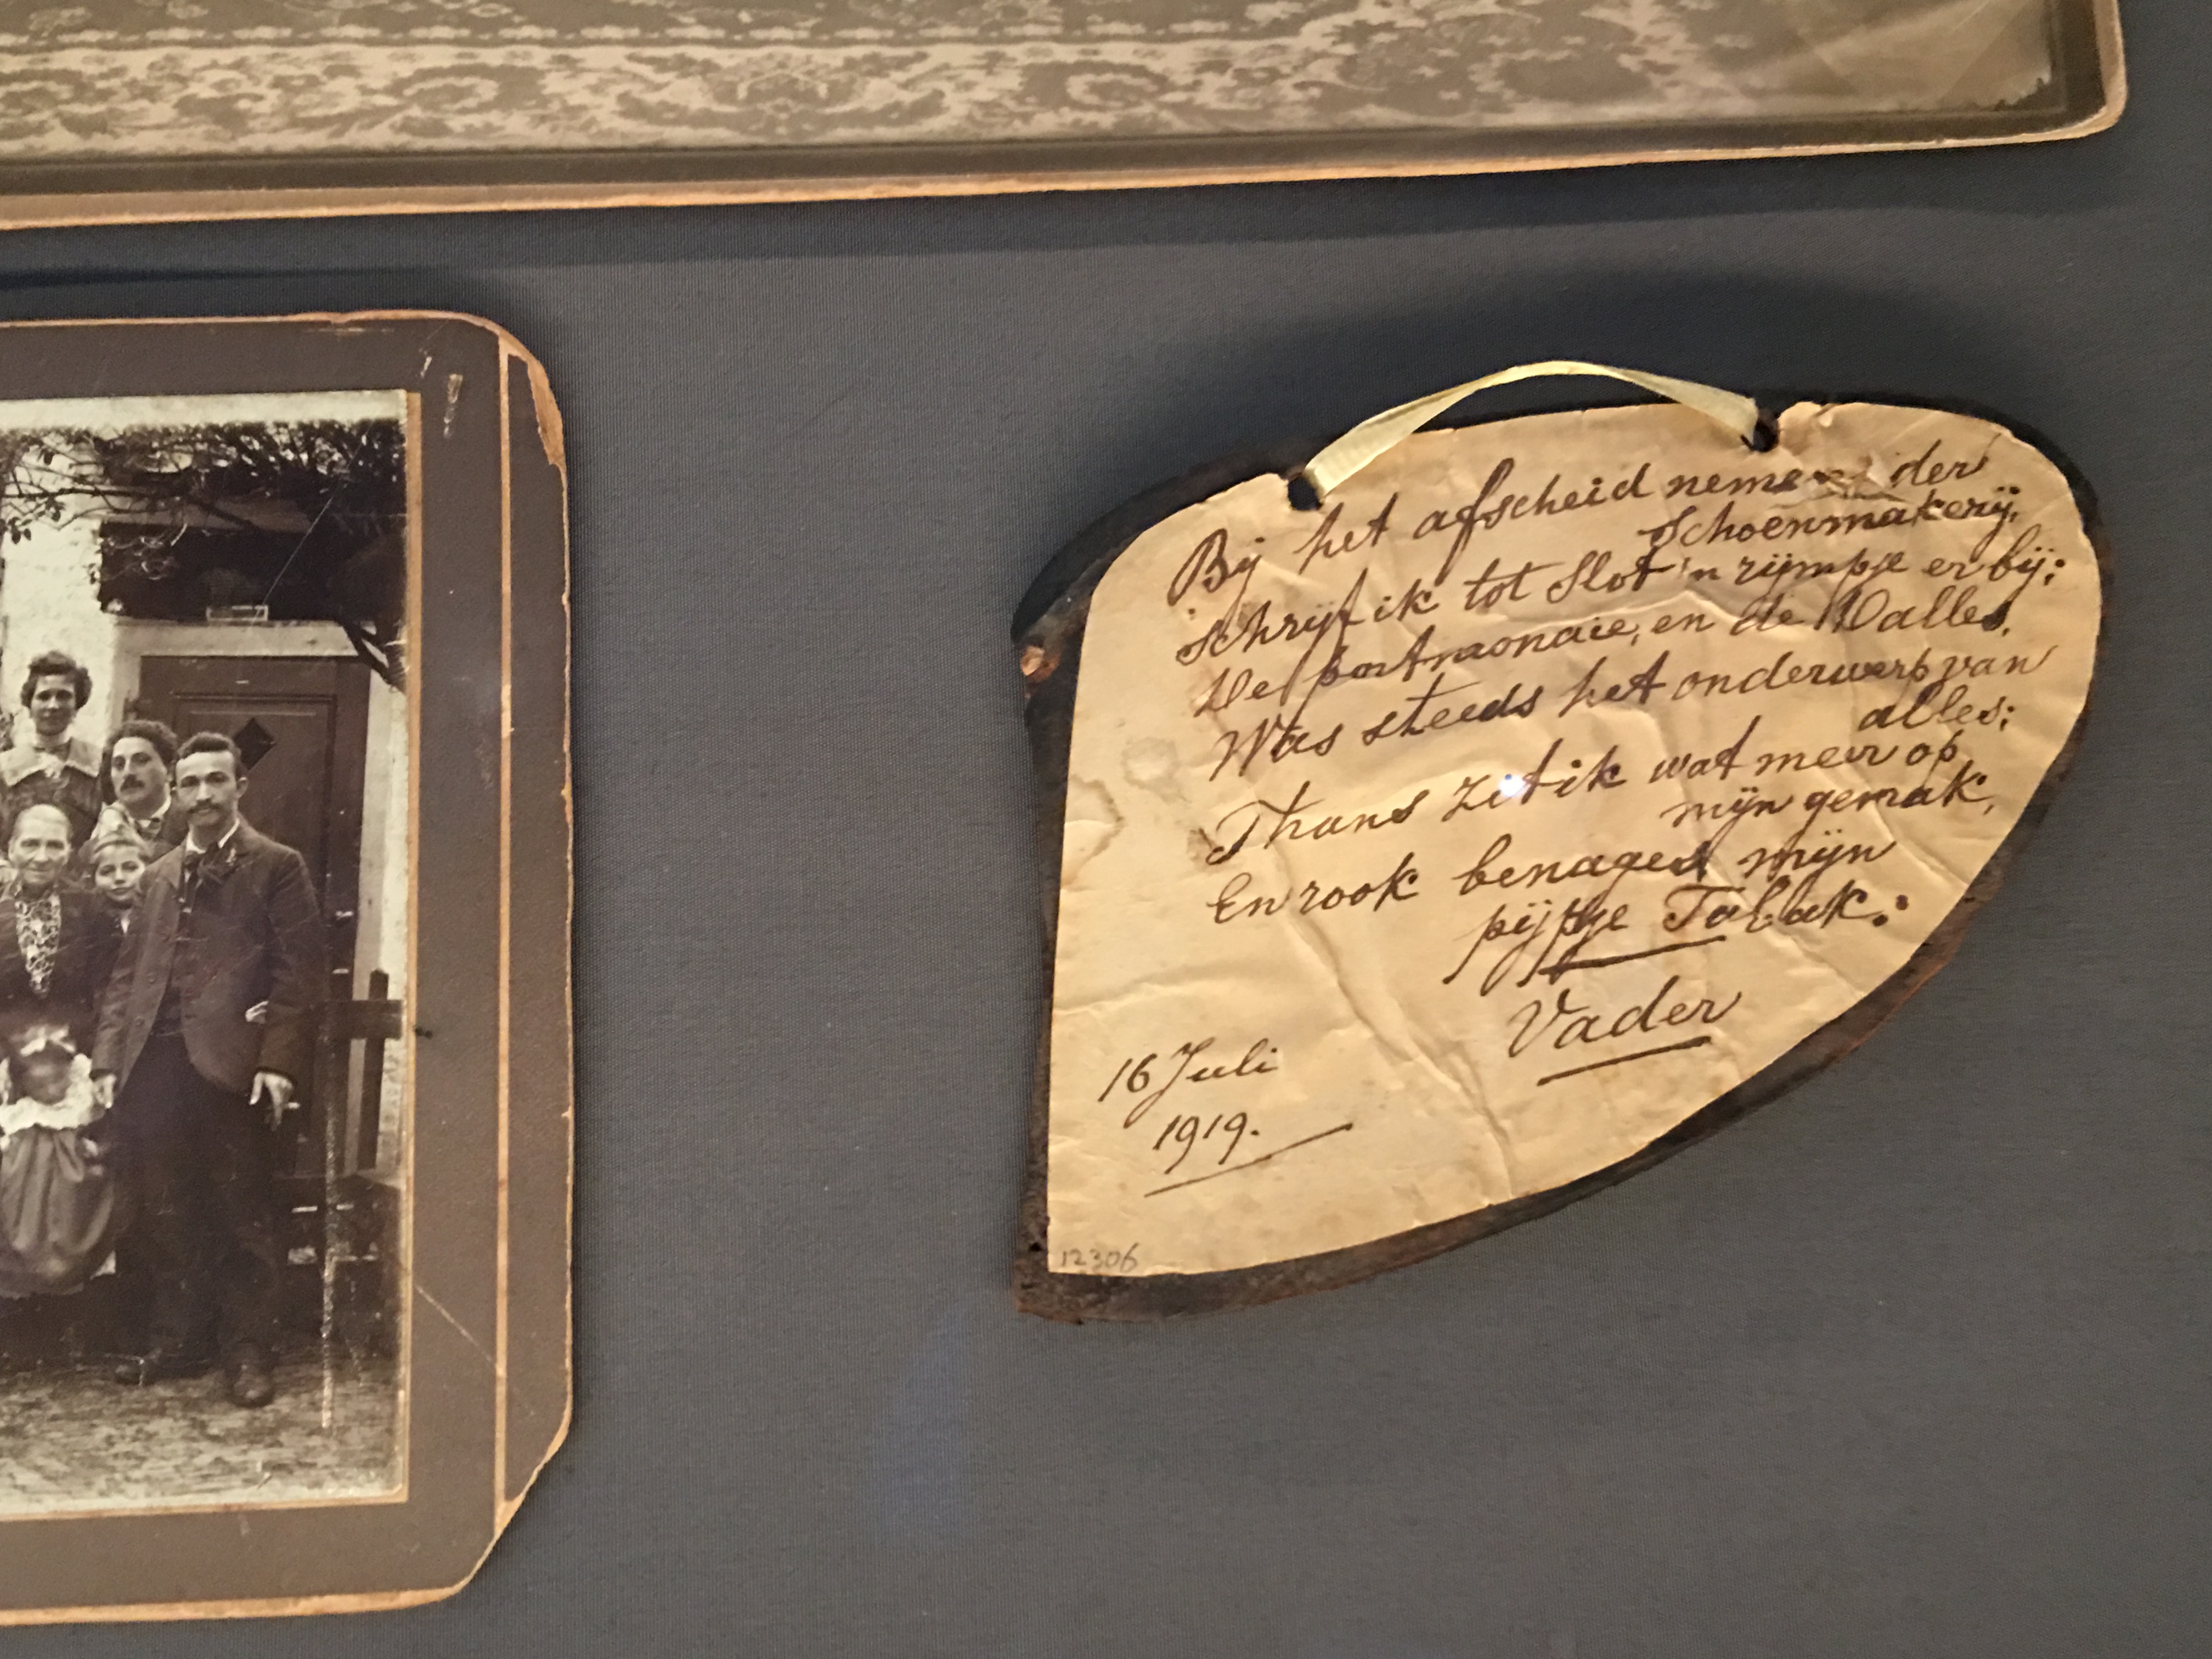 Bij het afscheid nemen der
schoenmakerij,
schrijf ik tot slot 'n rijmpje er bij:
De portmonaie, en de Dalles,
Was steeds het onderwerp van
alles:
Thans zit ik wat meer op
mijn gemak,
En rook benaged mijn
pijpje Tabak:
Vader
16 Juli
1919.
12306